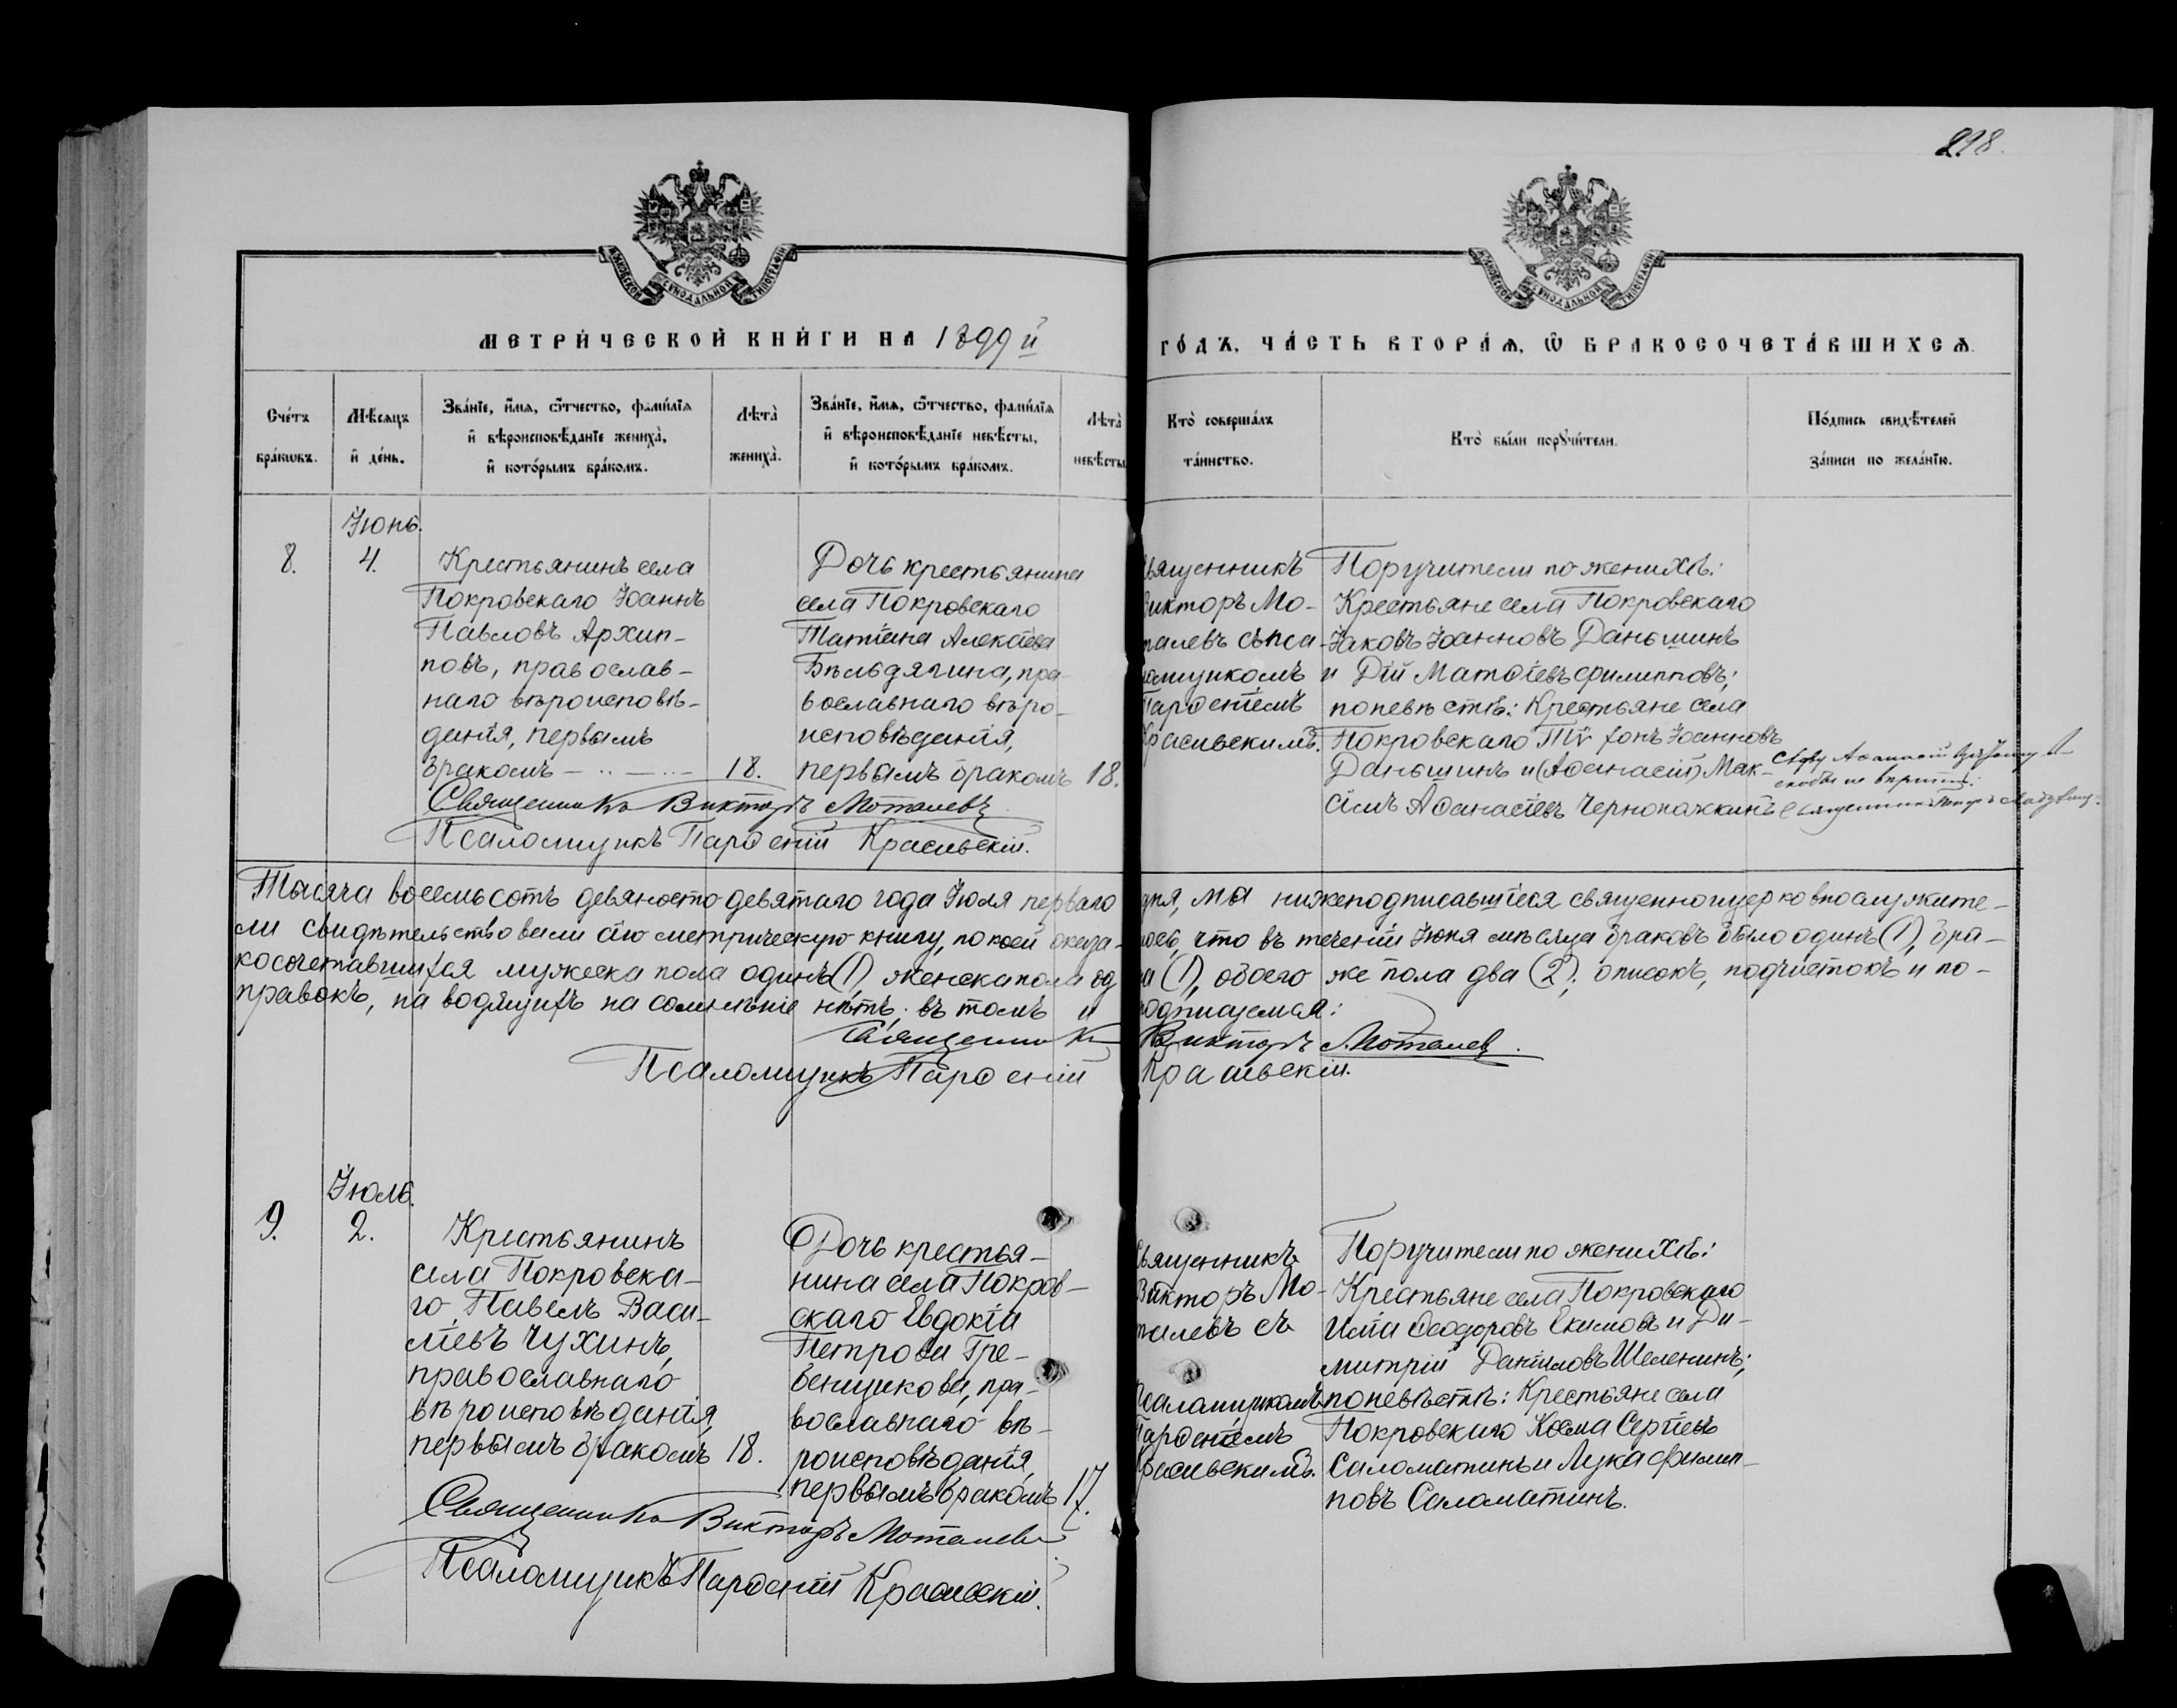 298.
МОСКОВСКОЙ СѴНОДАЛЬНОЙ ТИПОГРАФІИ
МОСКОВСКОЙ СѴНОДАЛЬНОЙ ТИПОГРАФІИ
МЕТРИ́ЧЕСКОЙ КНИ́ГИ НА 1899 й
ГО́ДЪ, ЧА́СТЬ ВТОРА́Ѧ, Ѡ БРАКОСОЧЕТА́ВШИХСѦ.
Сче́тъ
бра́кѡвъ.
Мѣ́сѧцъ
и҆ де́нь.
Зва́нїе, и҆́мѧ, ѻ҆́тчество, фами́лїѧ
и҆ вѣроисповѣ́данїе жениха̀,
и҆ кото́рымъ бра́комъ.
Лѣта̀
жениха̀.
Зва́нїе, и҆́мѧ, ѻ҆́тчество, фами́лїѧ
и҆ вѣроисповѣ́данїе невѣ́сты,
и҆ кото́рымъ бра́комъ.
Лѣта̀
невѣ́сты
Кто̀ соверша́лъ
та́инство.
Кто̀ бы́ли порꙋчи́тели.
По́дпись свидѣ́телей
за́писи по жела́нїю.
Іюнь.
8.
4.
Крестьянинъ села
Покровскаго Іоаннъ
Павловъ Архип-
повъ, православ-
наго вѣроисповѣ-
данія, первымъ
бракомъ
18.
Дочь крестьянина
села Покровскаго
Татіана Алексіева
Бѣльдягина, пра-
вославнаго вѣро-
исповѣданія,
первымъ бракомъ
18.
вященникъ
икторъ Мо-
талевъ съ пса-
ломщикомъ
Парѳеніемъ
Красивскимъ.
Поручители по женихѣ:
Крестьяне села Покровскаго
Іаковъ Іоанновъ Даньшинъ
и Дій Матѳіевъ Филипповъ;
по невѣстѣ: Крестьяне села
Покровскаго Тѵхонъ Іоанновъ
Даньшинъ и (Аѳанасій) Мак-
сімъ Аѳанасіевъ Чернопажкинъ
Священникъ Викторъ Моталевъ
Псаломщикъ Парѳеній Красивскій.
Тысяча восемьсотъ девяносто девятаго года Іюля перваго
дня, мы нижеподписавшіеся священноцерковнослужите-
ли свидѣтельствовали сію метрическую книгу, по коей оказа-
лось, что въ теченіи Іюня мѣсяца браковъ было одинъ (1), бра-
косочетавшихся мужеска пола одинъ (1), женска пола од
на (1), обоего же пола два (2); описокъ, подчистокъ и по-
правокъ, наводящихъ на сомнѣніе нѣтъ; въ томъ и
подписуемся:
Священникъ Викторъ Моталев.
Псаломщикъ Парѳеній Красивскій.
Іюль.
9.
2.
Крестьянинъ
села Покровска-
го, Павелъ Васи-
ліевъ Чухинъ,
православнаго
вѣроисповѣданія,
первымъ бракомъ
18.
Дочь крестья-
нина села Покров-
скаго Евдокія
Петрова Гре-
бенщикова, пра-
вославнаго вѣ-
роисповѣданія,
первымъ бракомъ
17.
вященникъ
Викторъ Мо-
талевъ съ
Псаломщикомъ
Парѳеніемъ
Красивскимъ.
Поручители по женихѣ:
Крестьяне села Покровскаго
Илія Ѳеодоровъ Екимовъ и Ди-
митрій Даніиловъ Шеленинъ;
по невѣстѣ: Крестьяне села
Покровскаго Косма Сергіевъ
Саломатинъ и Лука Филип-
повъ Саломатинъ.
Священникъ Викторъ Моталевъ
Псаломщикъ Парѳеній Красивскій.